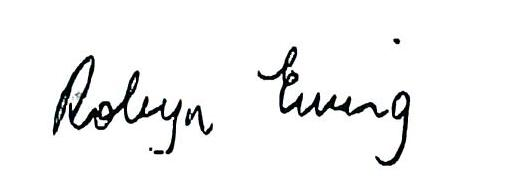 Robyn Ewing